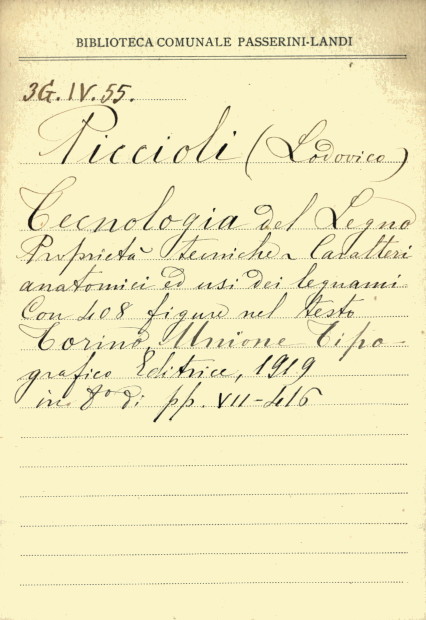 BIBLIOTECA COMUNALE PASSERINI-LANDI
3G. IV. 55.
Piccioli (Lodovico)
Tecnologia del Legno
Proprietà tecniche - Caratteri
anatomici ed usi dei legnami
Con 408 figure nel testo
Torino, Unione Tipo-
grafico Editrice, 1919
in 8º di pp. VII-416